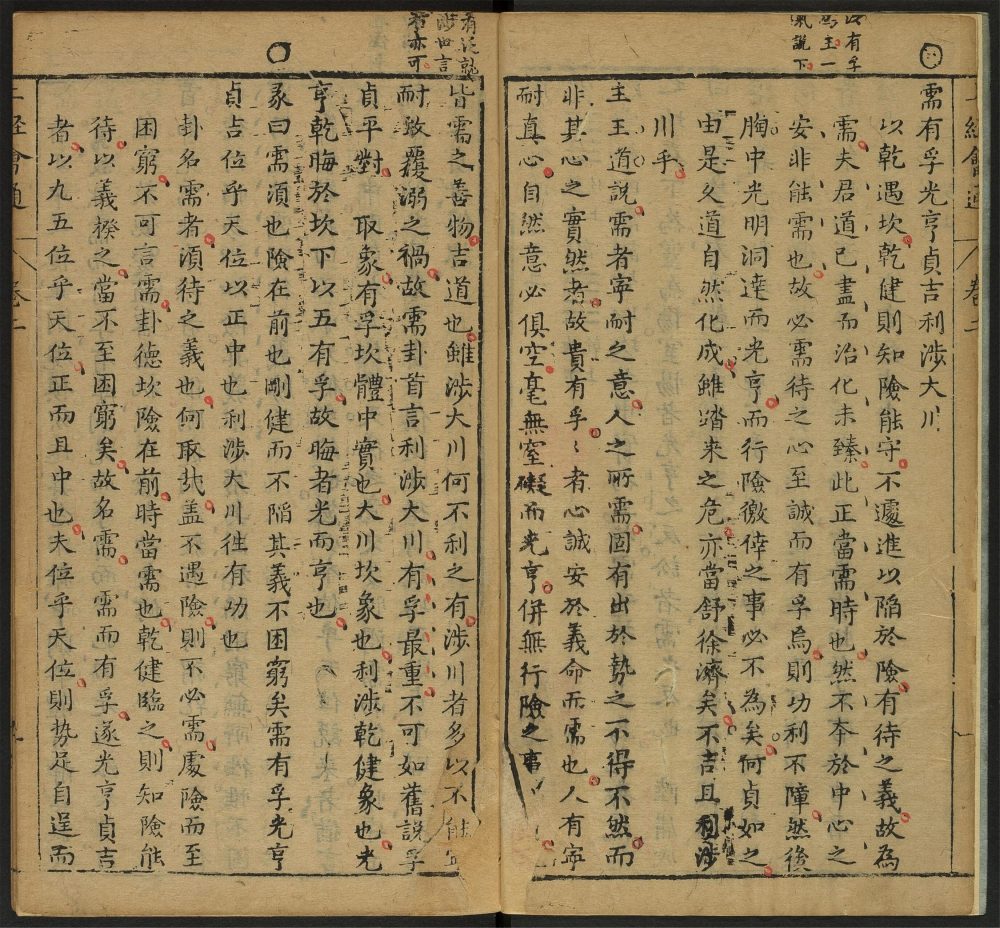 需有孚光亨貞吉利涉大川
以乾遇坎乾健則知險能守不遽進以陷於險有待之義故為
需夫君道已盡而治化未臻此正當需時也然不本於中心之
安非能需也故必需待之心至誠而有孚焉則功利不障然後
胸中光明洞達而光亨而行險徼倖之事必不為矣何貞如之
由是久道自然化成雖蹈来之危亦當舒徐濟矣不吉且利涉
川乎
主王道説需者寧耐之意人之所需固有出於勢之不得不然而
非其心之實然者故貴有孚〻者心誠安於義命而需也人有寧
耐真心自然意必俱空毫無窒礙而光亨併無行險之事
皆需之善物吉道也雖涉大川何不利之有涉川者多以不能寧
耐致覆溺之禍故需卦首言利涉大川有孚最重不可如舊説孚
貞平對 取象有孚坎體中實也大川坎象也利涉乾健象也光
亨乾晦於坎下以五有孚故晦者光而亨也
彖曰需須也險在前也剛健而不陷其義不困窮矣需有孚光亨
貞吉位乎天位以正中也利涉大川往有功也
卦名需者須待之義也何取哉盖不遇險則不必需處險而至
困窮不可言需卦徳坎險在前時當需也乾健臨之則知險能
待以義揆之當不至困窮矣故名需需而有孚遂光亨貞吉
者以九五位乎天位正而且中也夫位乎天位則势足自逞而